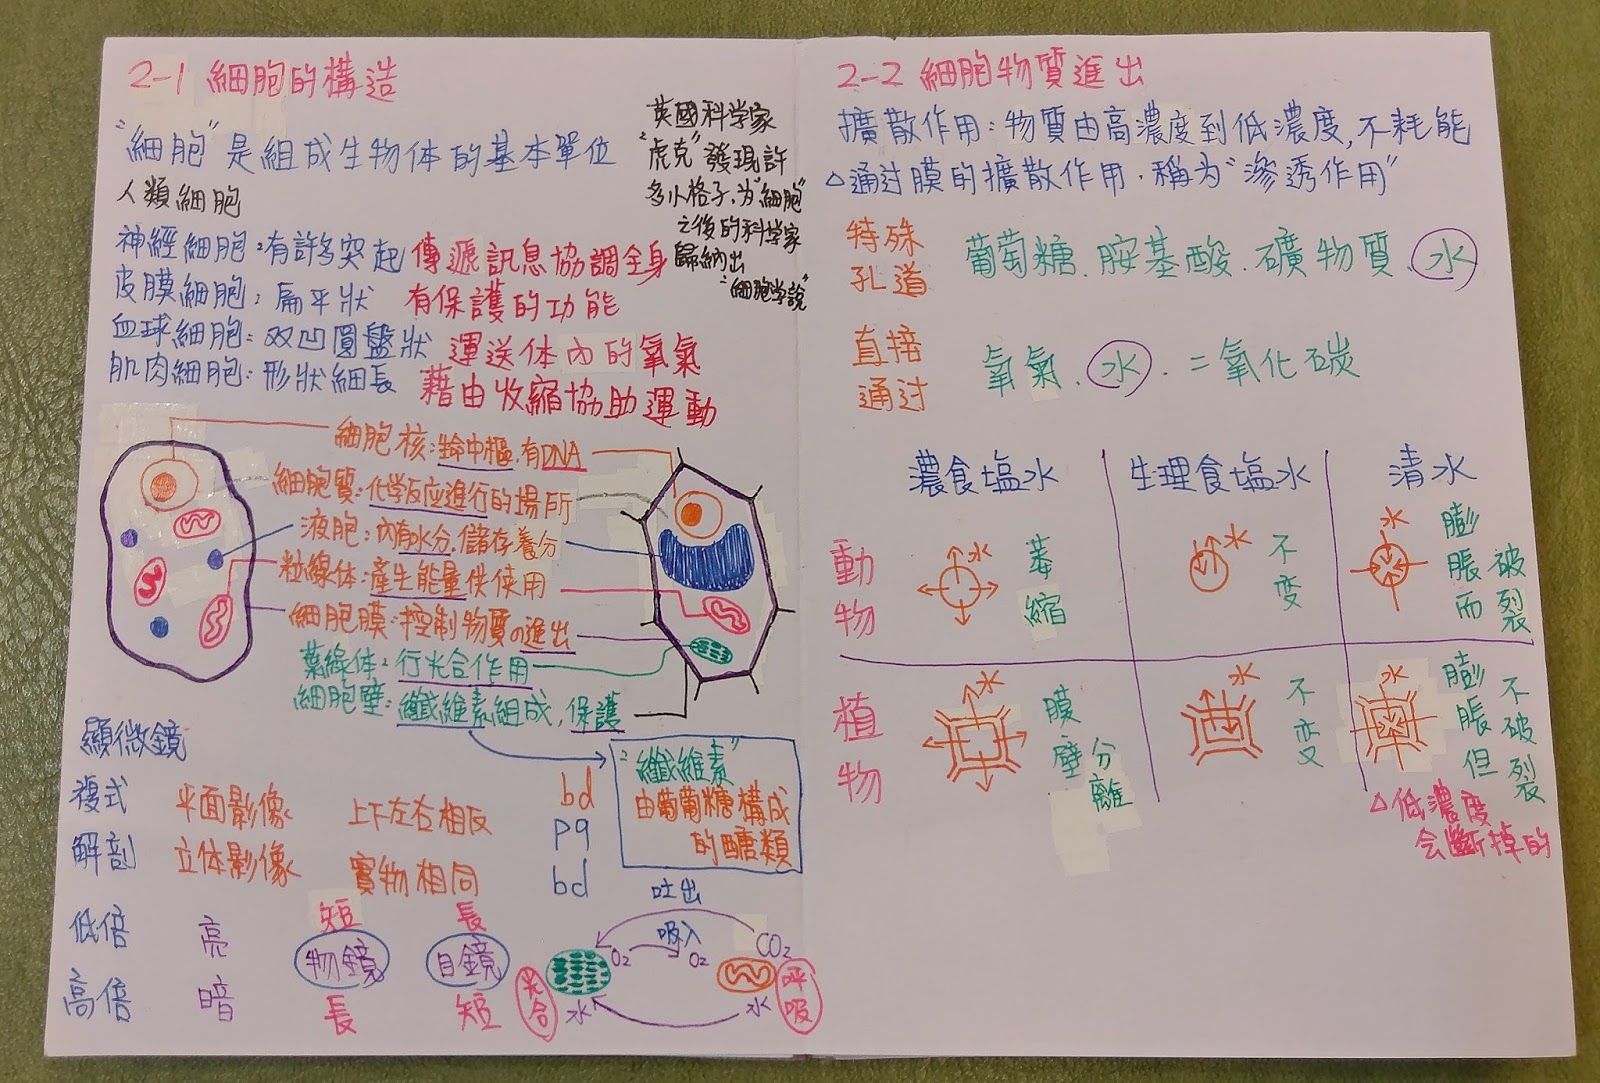 2-1 細胞的構造
"細胞"是組成生物体的基本單位
英國科学家
"虎克"發現許
多小格子,为"細胞"
之後的科学家
歸納出
"細胞学說"
人類細胞
神經細胞:有許多突起 傳遞訊息協調全身
皮膜細胞:扁平狀 有保護的功能
血球細胞:双凹圓盤狀 運送体內的氧氣
肌肉細胞:形狀細長 藉由收縮協助運動
細胞核:生命中樞.有DNA
細胞質:化学反应進行的場所
液胞:內有水分.儲存養分
粒線体:產生能量供使用
細胞膜:控制物質の進出
葉綠体:行光合作用
細胞壁:纖維素組成,保護
"纖維素"
由葡萄糖構成
的醣類
顯微鏡
複式 平面影像 上下左右相反 bd
pq
解剖 立体影像 實物相同 bd
低倍 亮 短 長
物鏡 目鏡
高倍 暗 長 短
吐出
吸入
O2 O2 CO2
光合 水 水 呼吸
2-2 細胞物質進出
擴散作用:物質由高濃度到低濃度,不耗能
△通过膜的擴散作用.稱为"滲透作用"
特殊
孔道
葡萄糖.胺基酸.礦物質.水
直接
通过
氧氣.水.二氧化碳
濃食塩水 生理食塩水 清水
動物 水 萎縮 水 不变 水 膨脹而破裂
植物 水 膜壁分離 水 不变 水 膨脹但不破裂
△低濃度
会斷掉的